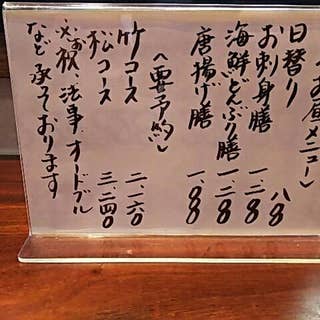 お昼メニュー〉
日替り 八〇〇
お刺身膳 一、二〇〇
海鮮どんぶり膳 一、二〇〇
唐揚げ膳 一、〇〇〇
〈要予約〉
竹コース 二、一六〇
松コース 三、二四〇
※お祝、法事、オードブル
など承っております